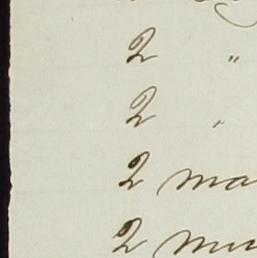 2 "
2 "
2 ma
2 mu